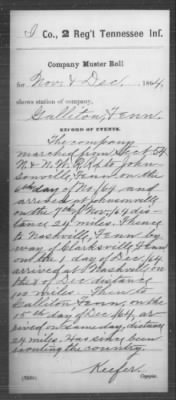 I Co., 2 Reg't Tennessee Inf.
Company Muster Roll
for Nov. & Dec., 1864,
shows station of company,
Gallatin, Tenn.
RECORD OF EVENTS.
The company
marched from Sec. 54
N. & N.W. R.R. to John-
sonville, Tenn. on the
6th day of Nov/64 and
arrived at Johnsonville
on the 7th of Nov/64 dis-
tance 24 miles. Thence
to Nashville, Tenn. by
way of Clarksville, Tenn
on the 1 day of Dec/64
arrived at Nashville on
the 8 of Dec distance
100 miles. Thence to
Gallatin Tenn, on the
15th day of Dec/64, ar-
rived on same day, distance
24 miles. Has since been
scouting the country.
Keefer.
Copyist.